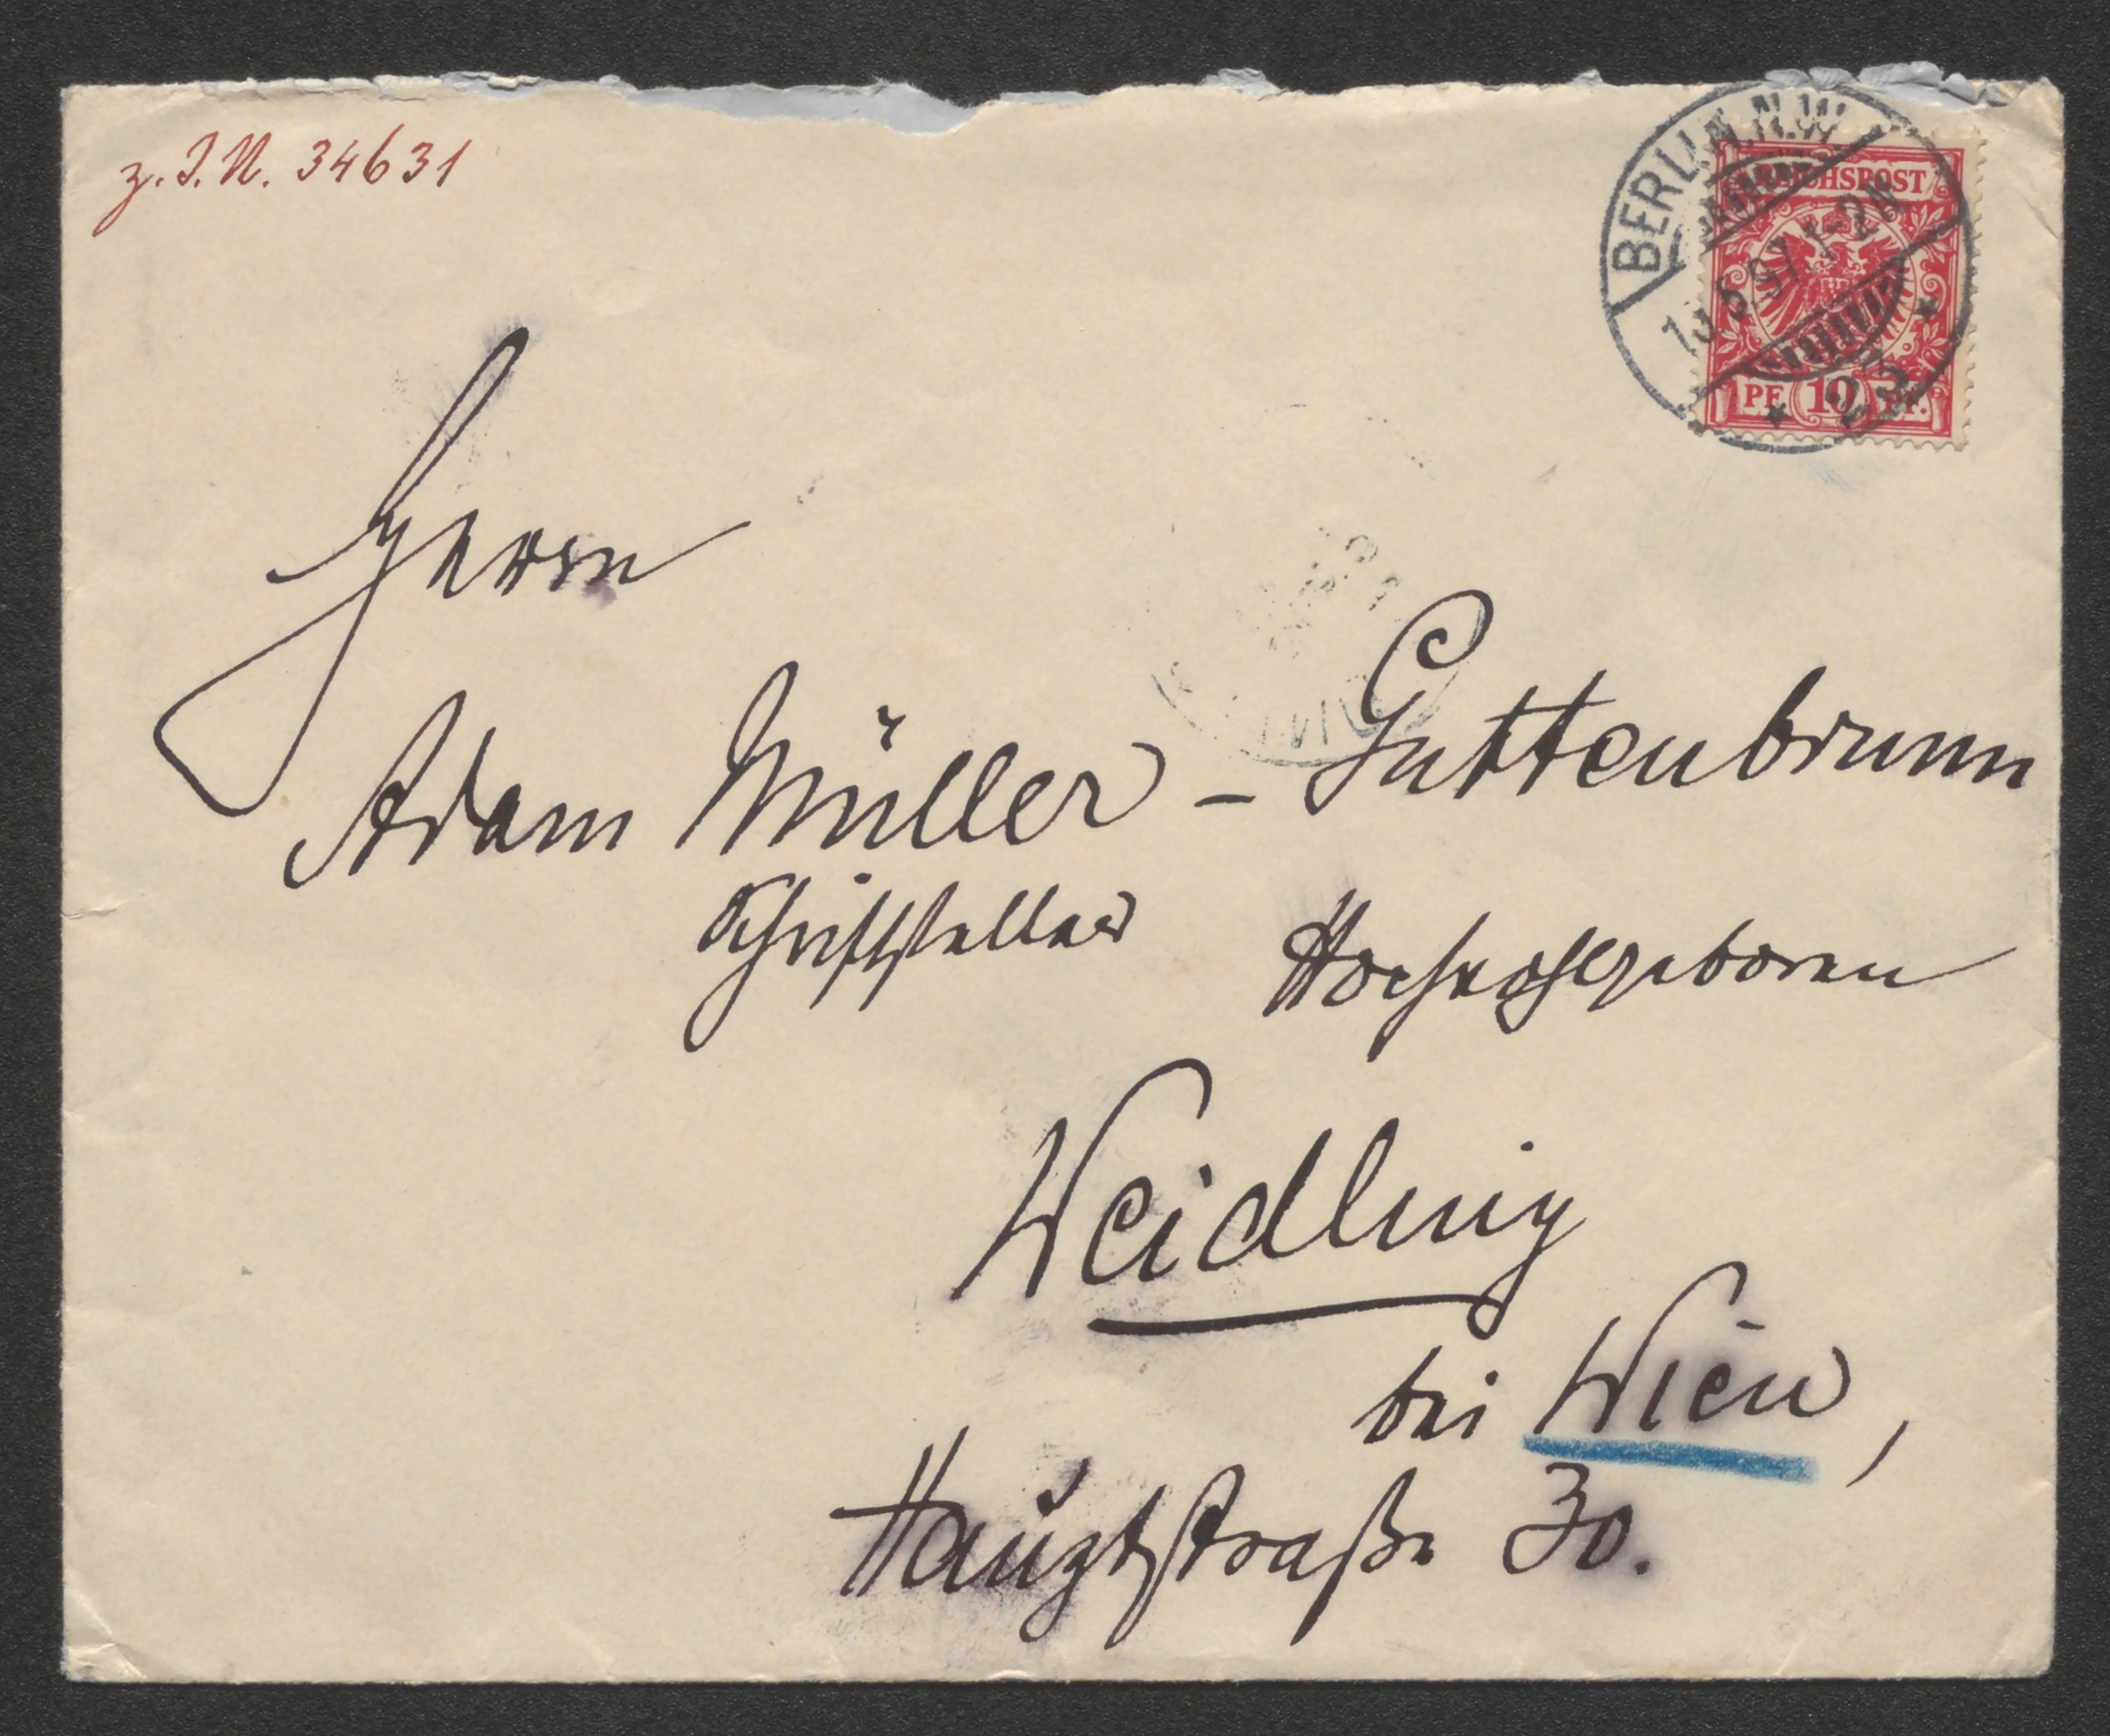 z. I. N. 34631
BERLIN, N.W.
REICHSPOST
97. 1-2N
23
PF 10 PF.
Herrn
Adam Müller - Guttenbrunn
Schriftsteller Hochwohlgeboren
Weidling
bei Wien,
Hauptstraße 30.